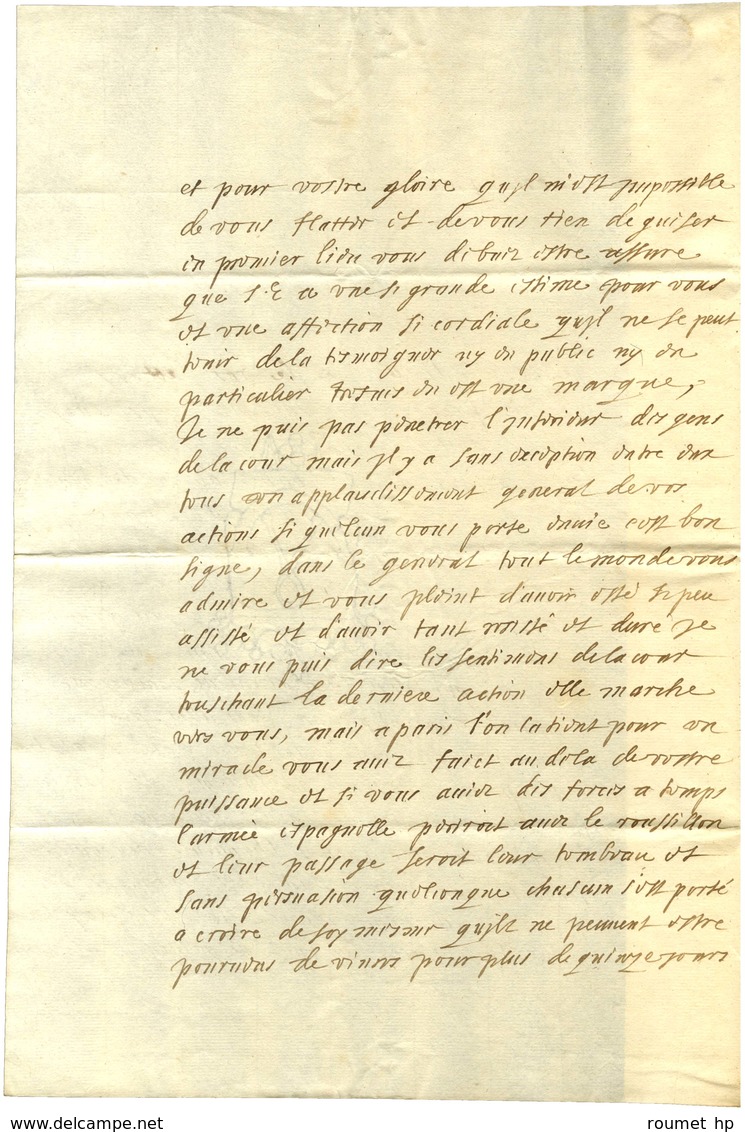 et pour vostre gloire qu'jl m'est jmpossible
de vous flatter et de vous rien deguiser
en premier lieu vous debuez estre assure
que S. E a vne si grande estime pour vous
et vne affection si cordiale qu'jl ne se peut
tenir de la tesmoigner ny en public ny en
particulier en est vne marque,
Je ne puis pas penetrer l'jnterieur des gens
de la cour mais jl y a sans exception entre eux
tous vn applaudissement general de vos
actions si quelcun vous porte enuie c'est bon
signe, dans le general tout le monde vous
admire et vous pleint d'auoir esté si peu
assisté et d'auoir tant resisté et duré je
ne vous puis dire les sentimens de la cour
touschant la derniere action elle marche
vers vous, mais a paris l'on la tient pour vn
miracle vous auez faict au dela de vostre
puissance et si vous auiez des forces a temps
l'armée espagnolle periroit auec le roussillon
et leur passage seroit leur tombeau et
sans persuasion quelconque chascun s'est porté
a croire de soy mesme qu'jlz ne peuuent estre
pourueus de viures pour plus de quinze jours
www.delcampe.net
roumet hp